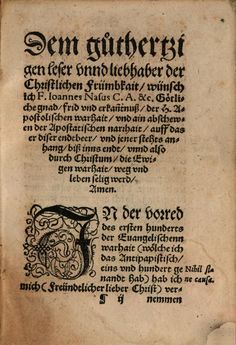 Dem gůthertzi
gen leser vnnd liebhaber der
Christlichen Frümbkait/ wünsch
ich F. Ioannes Nasus C. A. &c. Götli-
che gnad/ frid vnd erkañtnuß/ der A-
postolischen warhait/ vnd ain abschew-
en der Apostatischen narrhait/ auff das
er diser endtbeer/ vnd jener stehts an-
hang/ biß inns ende/ vnnd also
durch Christum/ die Ewi-
gen warhait/ weg vnd
leben selig werd/
Amen.
IN der vorred
des ersten hunderts
der Euangelischenn
warhait (wölche ich
das Antipapistisch/
eins vnd hundert ge Nihil si-
nandt hab) hab ich ne causa.
mich (Freündtlicher lieber Christ) ver-
¶ ij nemmen